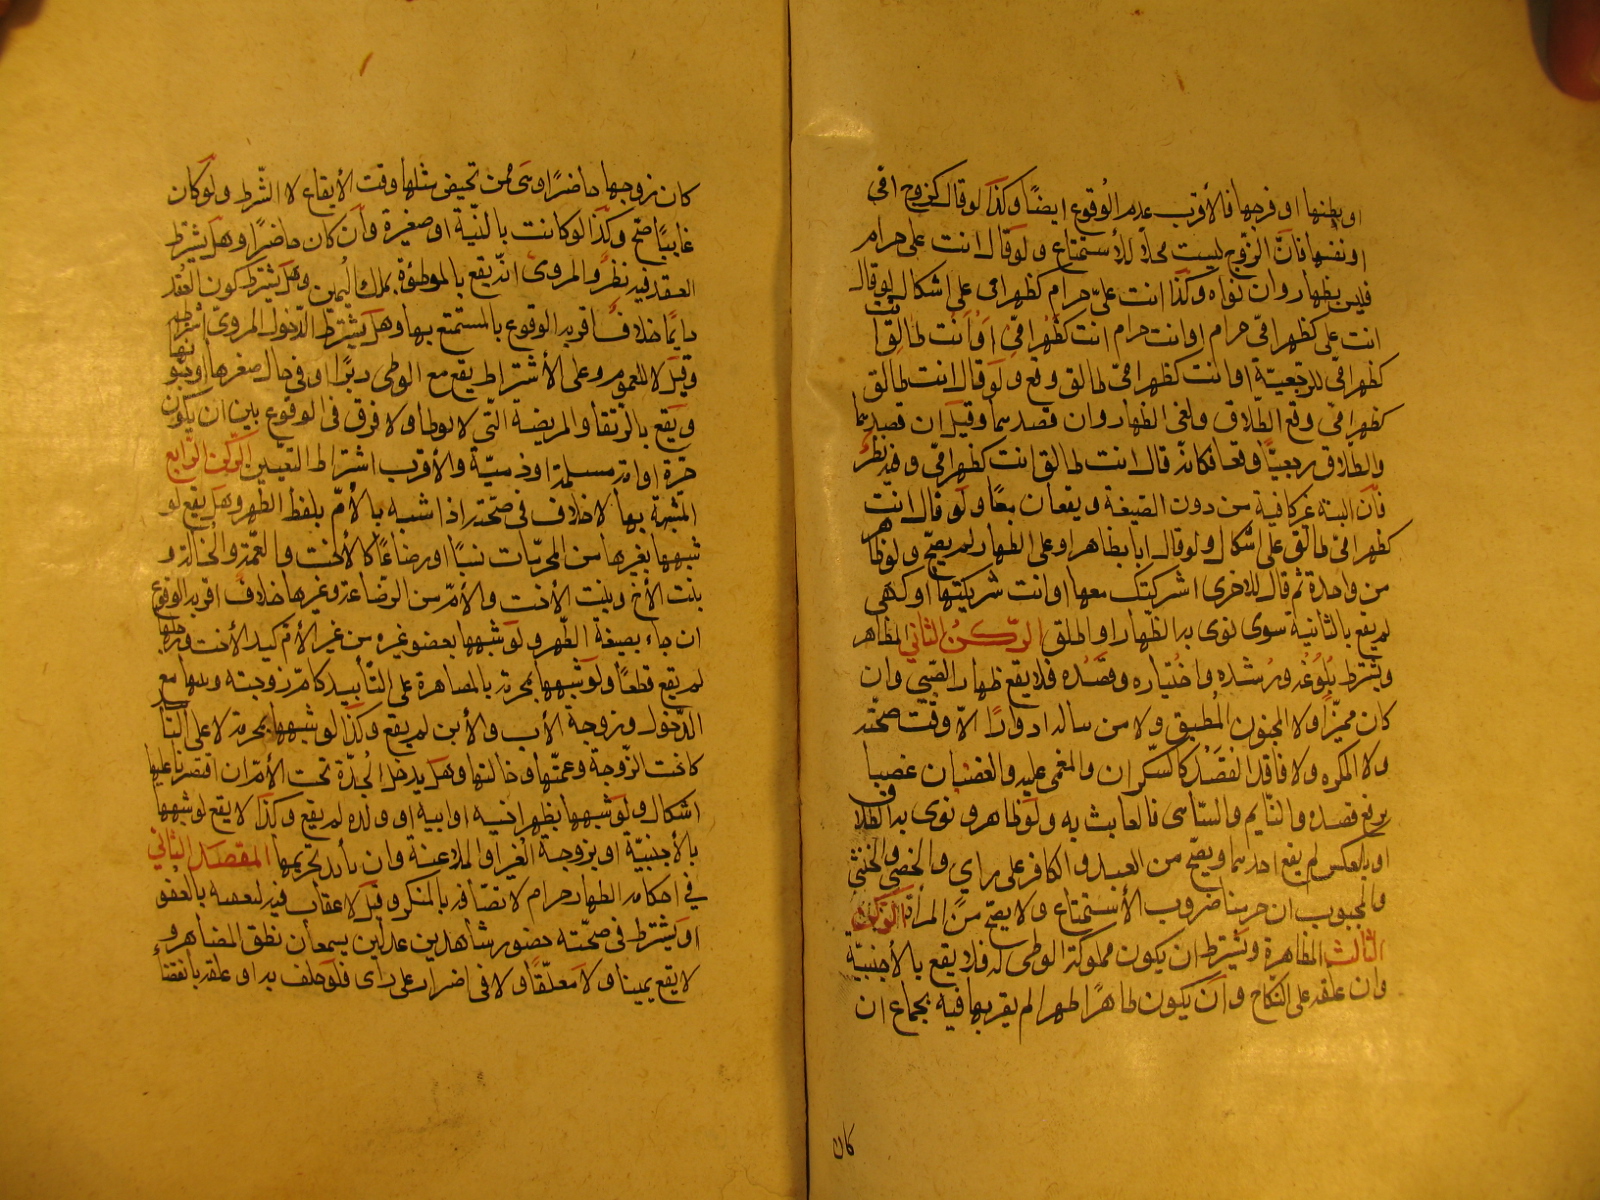 او بطنها او فرجها فالأقرب عدم الوُقوع ايضًا وكذا لو قال كزوج امّي
او نفسها فانّ الزّوج ليست محلاً للأستمتاع ولو قال انت على حرام
فليس بظهار وان نواه وكذا انت علىّ حرام كظهر امى على اشكال لو قال
انت على كظهر امّى حرام او انت حرام انت كظهر امّي او أنت طالق
كظهر امّى للرّجعيّة او انت كظهر امّى طالق وقع ولو قال انت طالق
كظهر امّى وقع الطّلاق ولغى الظهار وان قصدهما وقيل ان قصدهما
والطّلاق رجعيًّا وقعا فكانّه قال انت طالق انت كظهر امّى وفيه نظر
فانّ النيّة غير كافية من دون الصّيغة ويقعان معًا ولو قال انت
كظهر امّى طالق على اشكال ولو قال ابا بظاهر اوعلى الظهار لم يصحّ ولو ظاهر
من واحدة ثم قال للاخرى اشركتك معها او انت شريكتها او كهى
لم يقع بالثانية سوى نوى به الظهار او اطلق الرّكن الثانى المظاهر
ويشترط بلُوغه ورُشده واختياره وقصْده فلا يقع ظهار الصّبي وان
كان مميّزًا ولا المجنون المُطبق ولا من يناله ادوارًا الّا وقت صحّته
ولا المكره ولا فاقد القصْد كالسّكران والمغمى عليه والغضبان غضبا
يرفع قصده والنّايم والسّاهى والعابث به ولو ظاهر و نوى به الطّلاق
او بالعكس لم يقع احدهما ويصحّ من العبد و الكافر على رأي والخصىّ والخنثى
والمجبوب ان حرمنا ضروب الأستمتاع ولا يصحّ من المرأة الرّكن
الثالث المظاهرة ويشترط ان يكون مملوكة الوطى له فلا يقع بالأجنبيّة
وان علقه على النكاح وان يكون طاهرًا طهرا لم يقربها فيه بجماع ان
كان
كان زوجها حاضرًا وهى ممن تحيض مثلها وقت الأيقاع لا الشّرط ولو كان
غايبًا صحّ وكذا لو كانت بالنية او صغيرة وأن كان حاضرًا وهل يشترط
العقد فيه نظر والمروى انّه يقع بالموطوُة بملك اليمين وهل يشترط كون العقد
دايمًا خلافٌ اقربه الوقوع بالمستمتع بها وهل يشترط الدّخول المروىّ اشتراطه
وقيل لا للعموم وعلى الأشتراط يقع مع الوطى دبرًا و فى حال صغرها وجنونها
ويقع بالرتقا والمريضة التى لا توطا ولا فرق فى الوقوع بين ان يكون
حرّة او امة مسلمة او ذميّة والأقرب اشتراط التعيين الرّكن الرّابع
المشبّه بها لاخلاف فى صحّته اذا شبه بالأمّ بلفظ الظهر وهل يقع لو
شبهها بغيرها من المحرّمات نسبًا ورضاعًا كالأخت والعمّة والخالة و
بنت الأخ وبنت الأخت والأمّ من الرضاعة وغيرها خلافٌ اقربه الوقوع
ان جاء بصيغة الظّهر ولو شبهها بعضو غيره من غير الأم كيد الأخت ورجلها
لم يقع قطعاً ولو شبهها بمحرمة بالمصاهرة على التّأبيد كامّ زوجته وبنتها مع
الدّخول وزوجة الأب والأبن لم يقع وكذا لو شبهها بمحرمة لا على التأ
كاخت الزّوجة وعمّتها و خالتها وهل يدخل الجدّة تحت الأمّ ان اقتصرنا عليها
اشكال ولو شبهها بظهر اخيه او ابيه او ولده لم يقع وكذا لا يقع لو شبهها
بالأجنبيّة او بزوجة الغير او الملاعنة وان تأبد تحريمها المقصد الثاني
فى احكامه الظهار حرام لاتصافه بالمنكر وقيل لا عقاب فيه لتعقبه بالعفو
او يشترط فى صحّته حضور شاهدين عدلين يسمعان نطق المظاهر و
لا يقع يمينا ولا معلّقًا ولا فى اضرار على رأى فلو حلف به او علقه بانقضاء